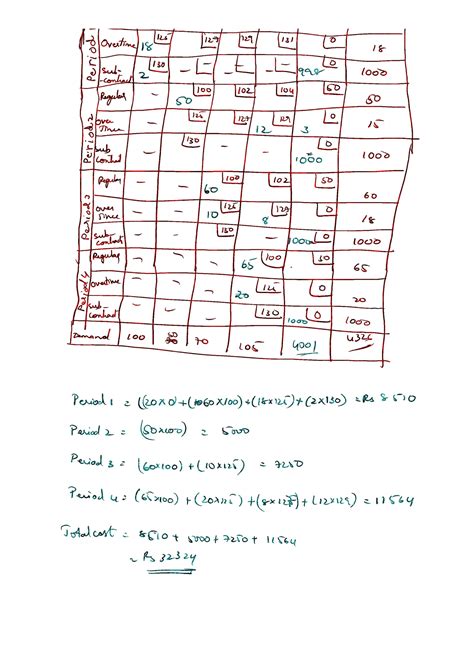 Period 1 Overtime 18 125 - 127 - 129 - 131 - 0 18
Sub-contract 2 130 - - - 998 0 1000
Period 2 Regular - 50 100 - 102 - 104 - 50 50
Over time - - 125 - 127 12 129 3 0 15
Sub contract - - 130 - - 1000 0 1000
Period 3 Regular - - 60 100 - 102 - 50 60
Over time - - 10 125 8 129 - 0 18
Sub-contract - - - 130 - 1000 0 1000
Period 4 Regular - - - 65 100 - 50 65
Overtime - - - 20 125 - 0 20
Sub-contract - - - - 130 1000 0 1000
Demand 100 50 70 105 4001 4326
Period 1 = ((20x0)+(1060x100)+(18x125)+(2x130) = Rs 8510
Period 2 = (50x100) = 5000
Period 3 = (60x100)+(10x125) = 7250
Period 4 = (65x100)+(20x125)+(8x127)+(12x129) = 11564
Total cost = 8510 + 5000 + 7250 + 11564
= Rs 32324